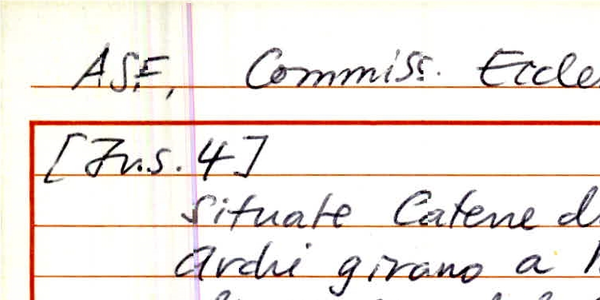 ASF, Commiss. Eccle
[Ins. 4]
situate Catene d
Archi girano a